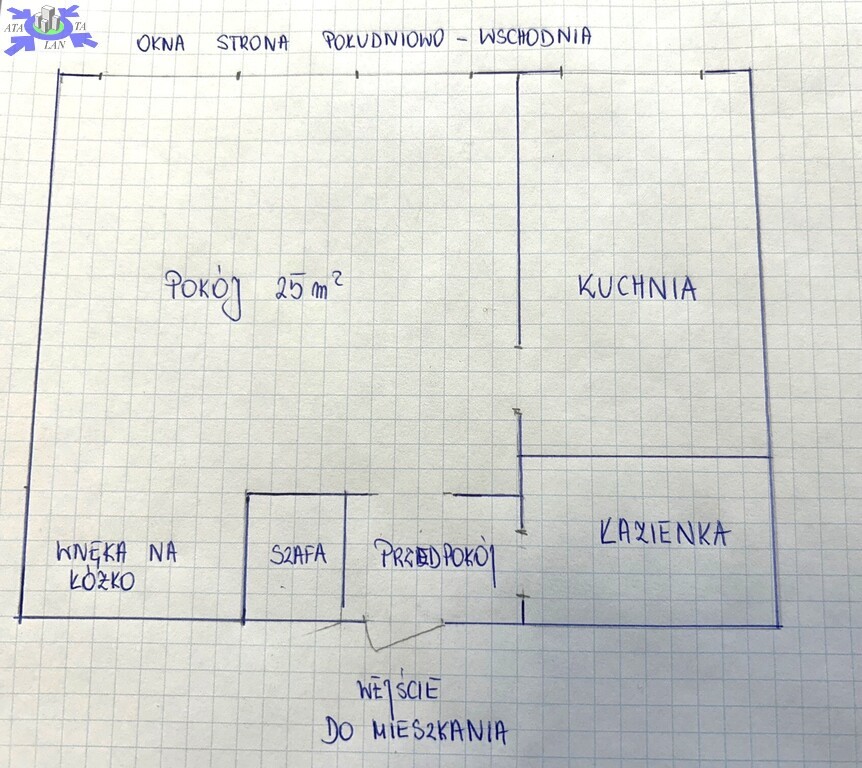 ATA TA
LAN
OKNA STRONA POŁUDNIOWO - WSCHODNIA
POKÓJ 25 m²
KUCHNIA
WNĘKA NA
ŁÓŻKO
SZAFA
PRZEDPOKÓJ
ŁAZIENKA
WEJŚCIE
DO MIESZKANIA